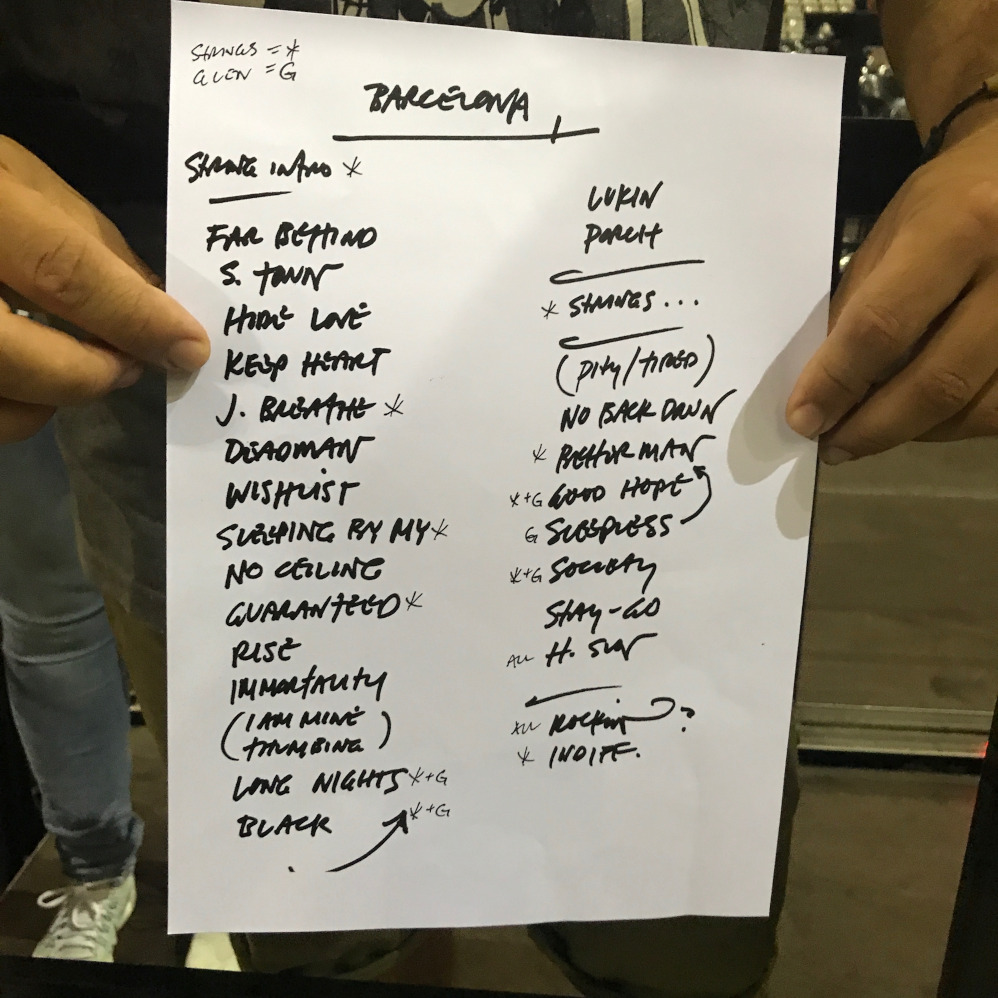 STRINGS = *
GLEN = G
BARCELONA
STRING INTRO *
FAR BEHIND
S. TOWN
HIDE LOVE
KEEP HEART
J. BREATHE *
DEADMAN
WISHLIST
SLEEPING BY MY *
NO CEILING
GUARANTEED *
RISE
IMMORTALITY
(I AM MINE
THUMBING)
LONG NIGHTS *+G
BLACK *+G
LUKIN
PORCH
* STRINGS...
(PITY/TIRED)
NO BACK DOWN
* BETTER MAN
*+G GOOD HOPE
G SLEEPLESS
*+G SOCIETY
STAY-GO
ALL H. SUN
ALL ROCKIN ?
* INDIFF.